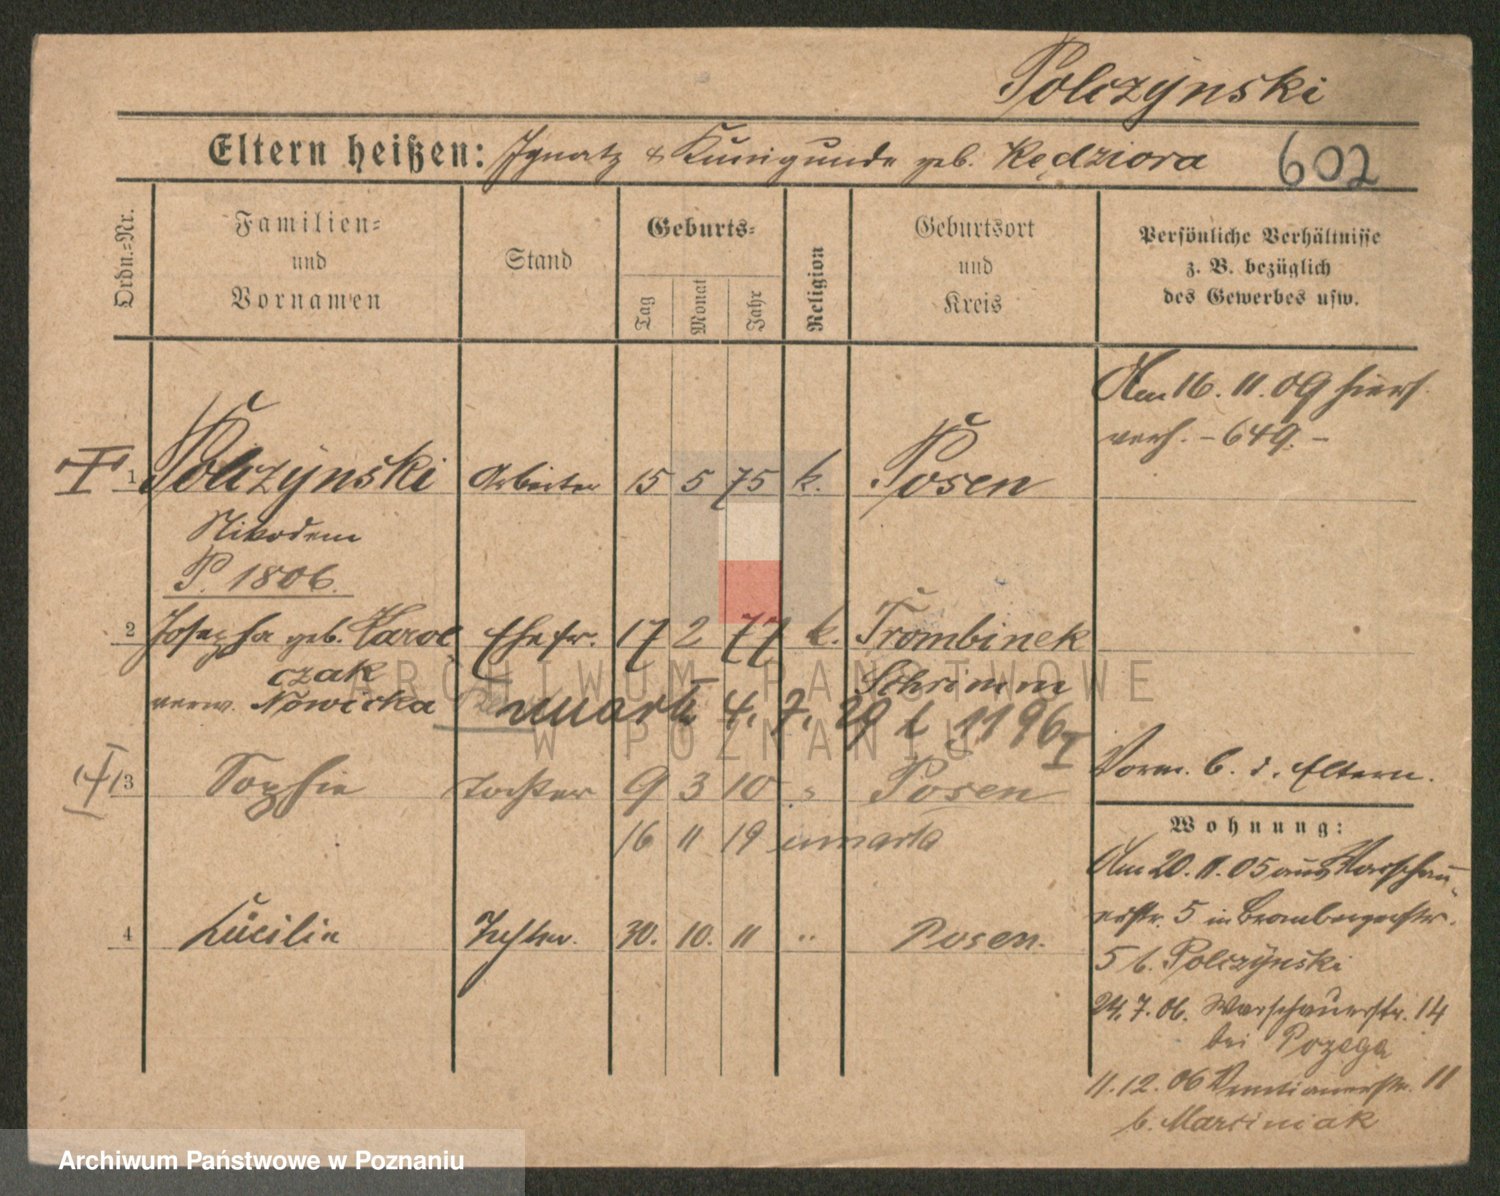 Polczynski
Eltern heißen: Ignatz & Kunigunde geb. Kędziora 602
Ordn.=Nr.
Familien=
und
Vornamen
Stand
Geburts=
Tag
Monat
Jahr
Religion
Geburtsort
und
Kreis
Persönliche Verhältnisse
z. B. bezüglich
des Gewerbes usw.
Am 16. 11. 09 hiers.
verh. - 649. -
I 1 Polczynski Arbeiter 15 5 75 k. Posen
Nikodem
P. 1806.
2 Josepha geb. Karol Ehefr. 17 2 77 k. Trombinek
czak Schrimm
verw. Nowicka
umarła 4. 7. 29 1196
I
Vorm. b. d. Eltern.
3 Sophie Tochter 9 3 10 " Posen
16 11 19 umarła
4 Cäcilie Tochter. 30. 10. 11 " Posen.
Wohnung:
Am 20. 11. 05 aus Warschau-
erstr. 5 in Brombergerstr.
5 b. Polczynski
24. 7. 06. Warschauerstr. 14
bei Pozega
11. 12. 06 Venetianerstr. 11
b. Marciniak
ARCHIWUM PAŃSTWOWE
W POZNANIU
Archiwum Państwowe w Poznaniu